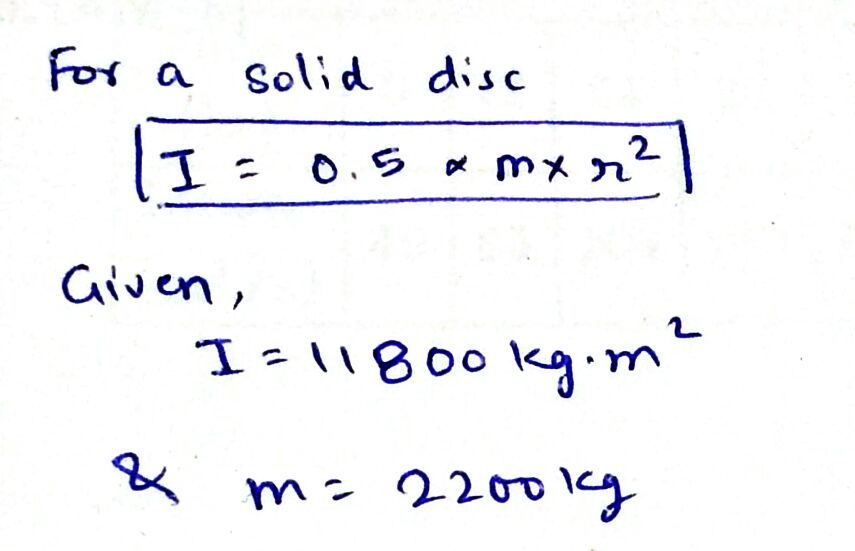 For a solid disc
I = 0.5 x m x r²
Given,
I = 11800 kg.m²
& m = 2200 kg